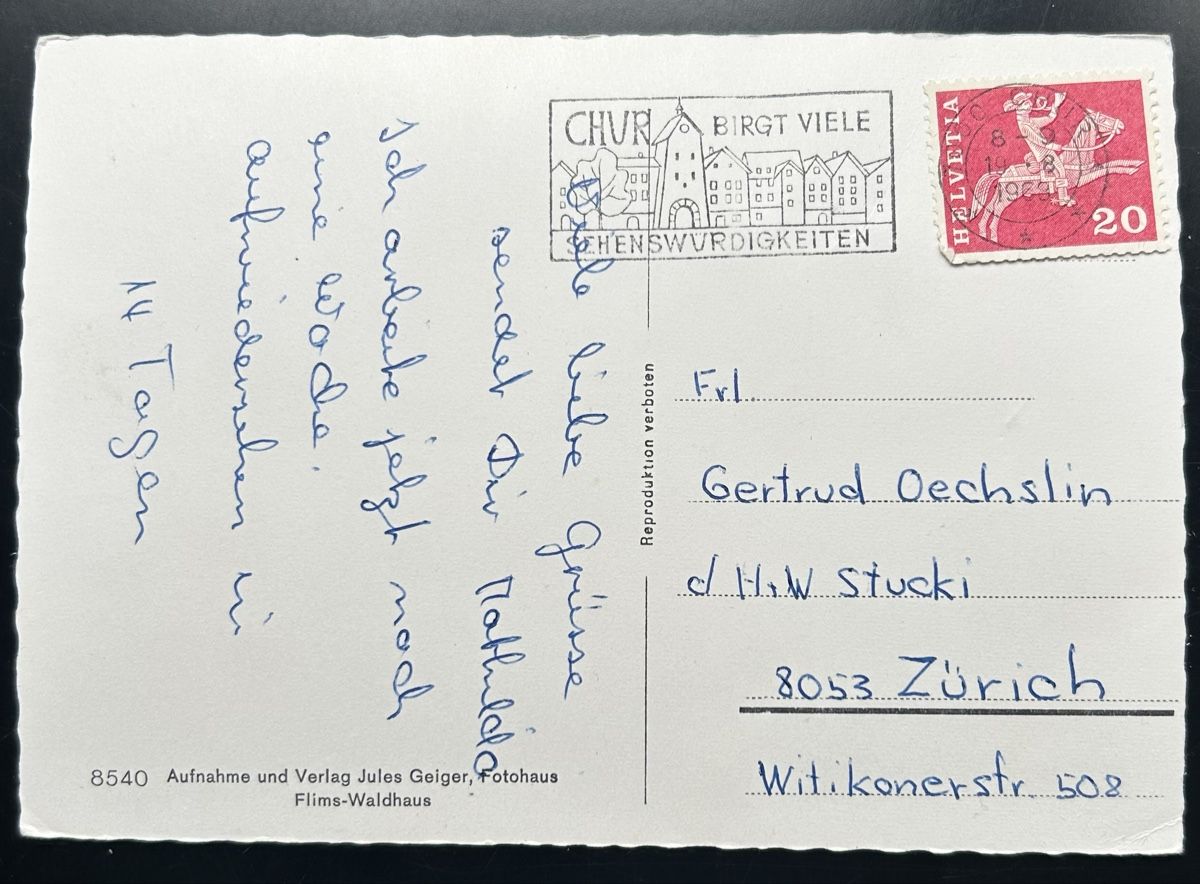 CHUR BIRGT VIELE
SEHENSWÜRDIGKEITEN
HELVETIA
20
8-9
Viele liebe Grüsse
sendet Dir Mathilda
Ich arbeite jetzt noch
eine Woche.
Aufwiedersehen in
14 Tagen
Reproduktion verboten
Frl.
Gertrud Oechslin
d H+W Stucki
8053 Zürich
Witikonerstr. 508
8540 Aufnahme und Verlag Jules Geiger, Fotohaus
Flims-Waldhaus